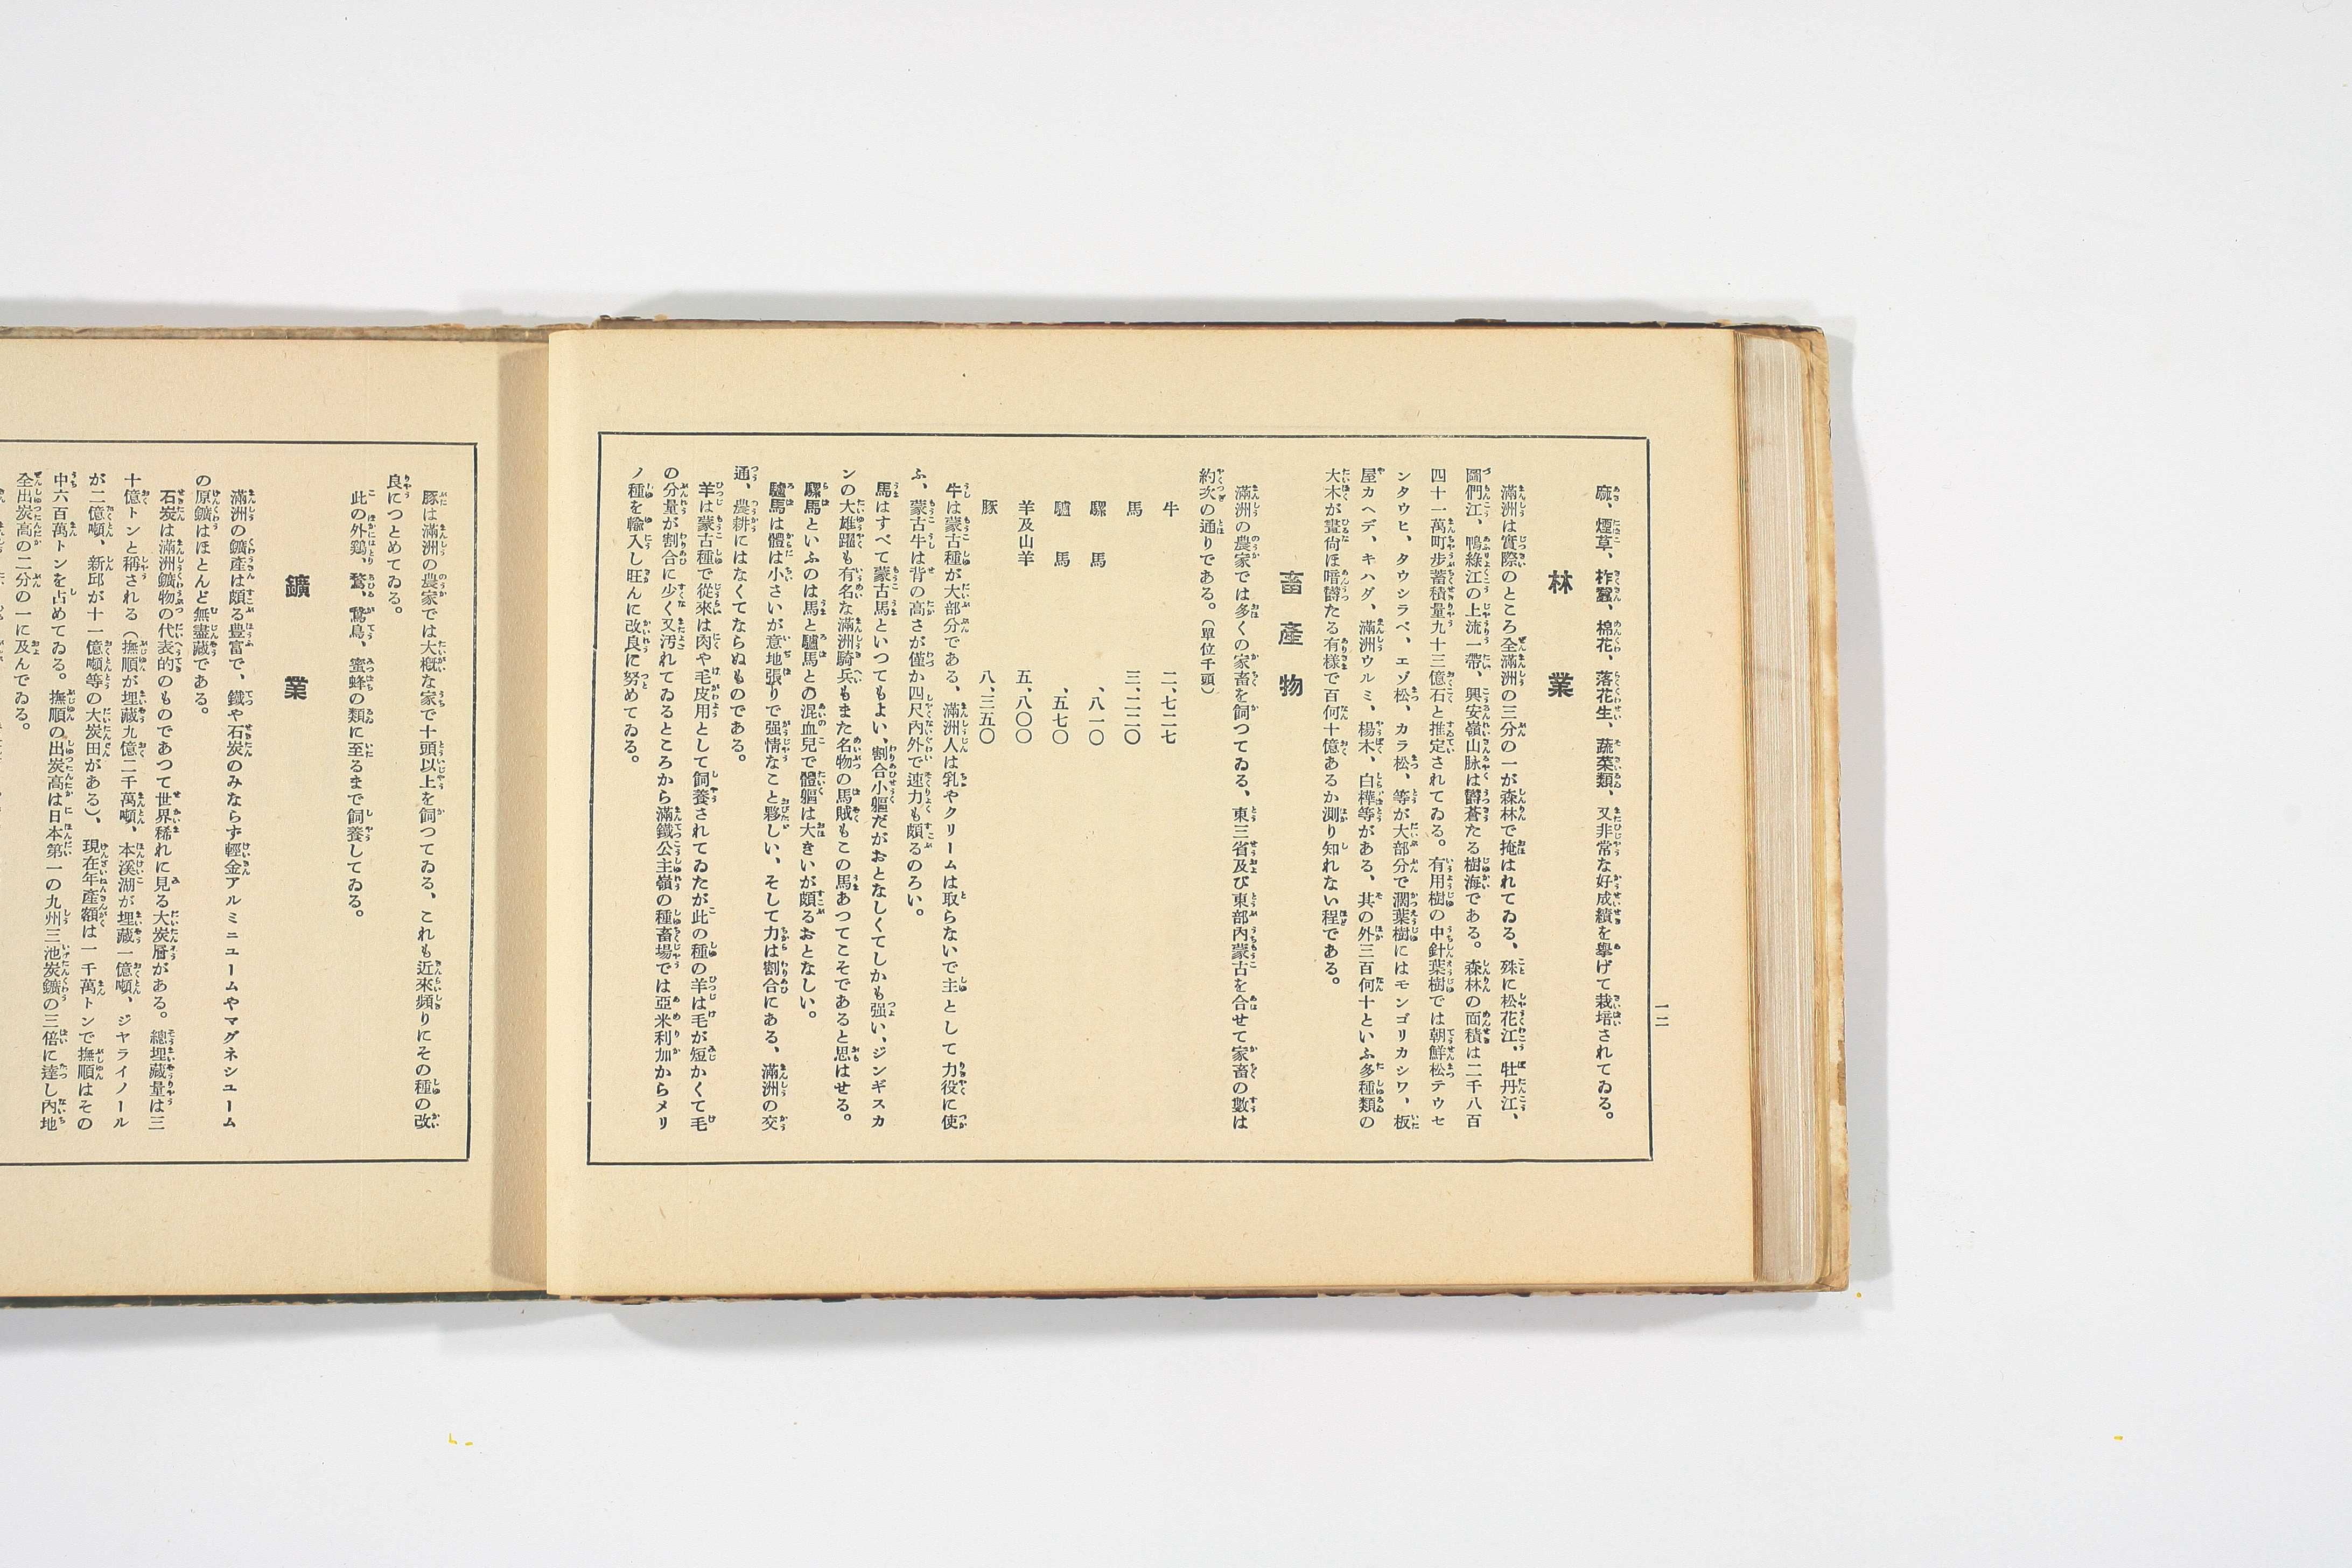 一二
麻、煙草、柞蠶、棉花、落花生、蔬菜類、又非常な好成績を擧げて栽培されてゐる。
林業
滿洲は實際のところ全滿洲の三分の一が森林で掩はれてゐる、殊に松花江、牡丹江、
圖們江、鴨綠江の上流一帶、興安嶺山脉は欝蒼たる樹海である。森林の面積は二千八百
四十一萬町步蓄積量九十三億石と推定されてゐる。有用樹の中針葉樹では朝鮮松テウセ
ンタウヒ、タウシラベ、エゾ松、カラ松、等が大部分で濶葉樹にはモンゴリカシワ、板
屋カヘデ、キハダ、滿洲ウルミ、楊木、白樺等がある、其の外三百何十といふ多種類の
大木が晝尙ほ暗欝たる有樣で百何十億あるか測り知れない程である。
畜產物
滿洲の農家では多くの家畜を飼つてゐる、東三省及び東部內蒙古を合せて家畜の數は
約次の通りである。(單位千頭)
牛 二、七二七
馬 三、二二〇
騾馬 、八一〇
驢馬 、五七〇
羊及山羊 五、八〇〇
豚 八、三五〇
牛は蒙古種が大部分である、滿洲人は乳やクリームは取らないで主として力役に使
ふ、蒙古牛は背の高さが僅か四尺內外で速力も頗るのろい。
馬はすべて蒙古馬といつてもよい、割合小軀だがおとなしくてしかも强い、ジンギスカ
ンの大雄躍も有名な滿洲騎兵もまた名物の馬賊もこの馬あつてこそであると思はせる。
騾馬といふのは馬と驢馬との混血兒で體軀は大きいが頗るおとなしい。
驢馬は體は小さいが意地張りで强情なこと夥しい、そして力は割合にある、滿洲の交
通、農耕にはなくてならぬものである。
羊は蒙古種で從來は肉や毛皮用として飼養されてゐたが此の種の羊は毛が短かくて毛
の分量が割合に少く又汚れてゐるところから滿鐵公主嶺の種畜場では亞米利加からメリ
ノ種を輸入し旺んに改良に努めてゐる。
豚は滿洲の農家では大槪な家で十頭以上を飼つてゐる、これも近來頻りにその種の改
良につとめてゐる。
此の外鷄、鶩、鵞鳥、蜜蜂の類に至るまで飼養してゐる。
鑛業
滿洲の鑛產は頗る豊富で、鐵や石炭のみならず輕金アルミニユームやマグネシユーム
の原鑛はほとんど無盡藏である。
石炭は滿洲鑛物の代表的のものであつて世界稀れに見る大炭層がある。總埋藏量は三
十億トンと稱される(撫順が埋藏九億二千萬噸、本溪湖が埋藏一億噸、ジヤライノール
が二億噸、新邱が十一億噸等の大炭田がある)、現在年產額は一千萬トンで撫順はその
中六百萬トンを占めてゐる。撫順の出炭高は日本第一の九州三池炭鑛の三倍に達し內地
全出炭高の二分の一に及んでゐる。